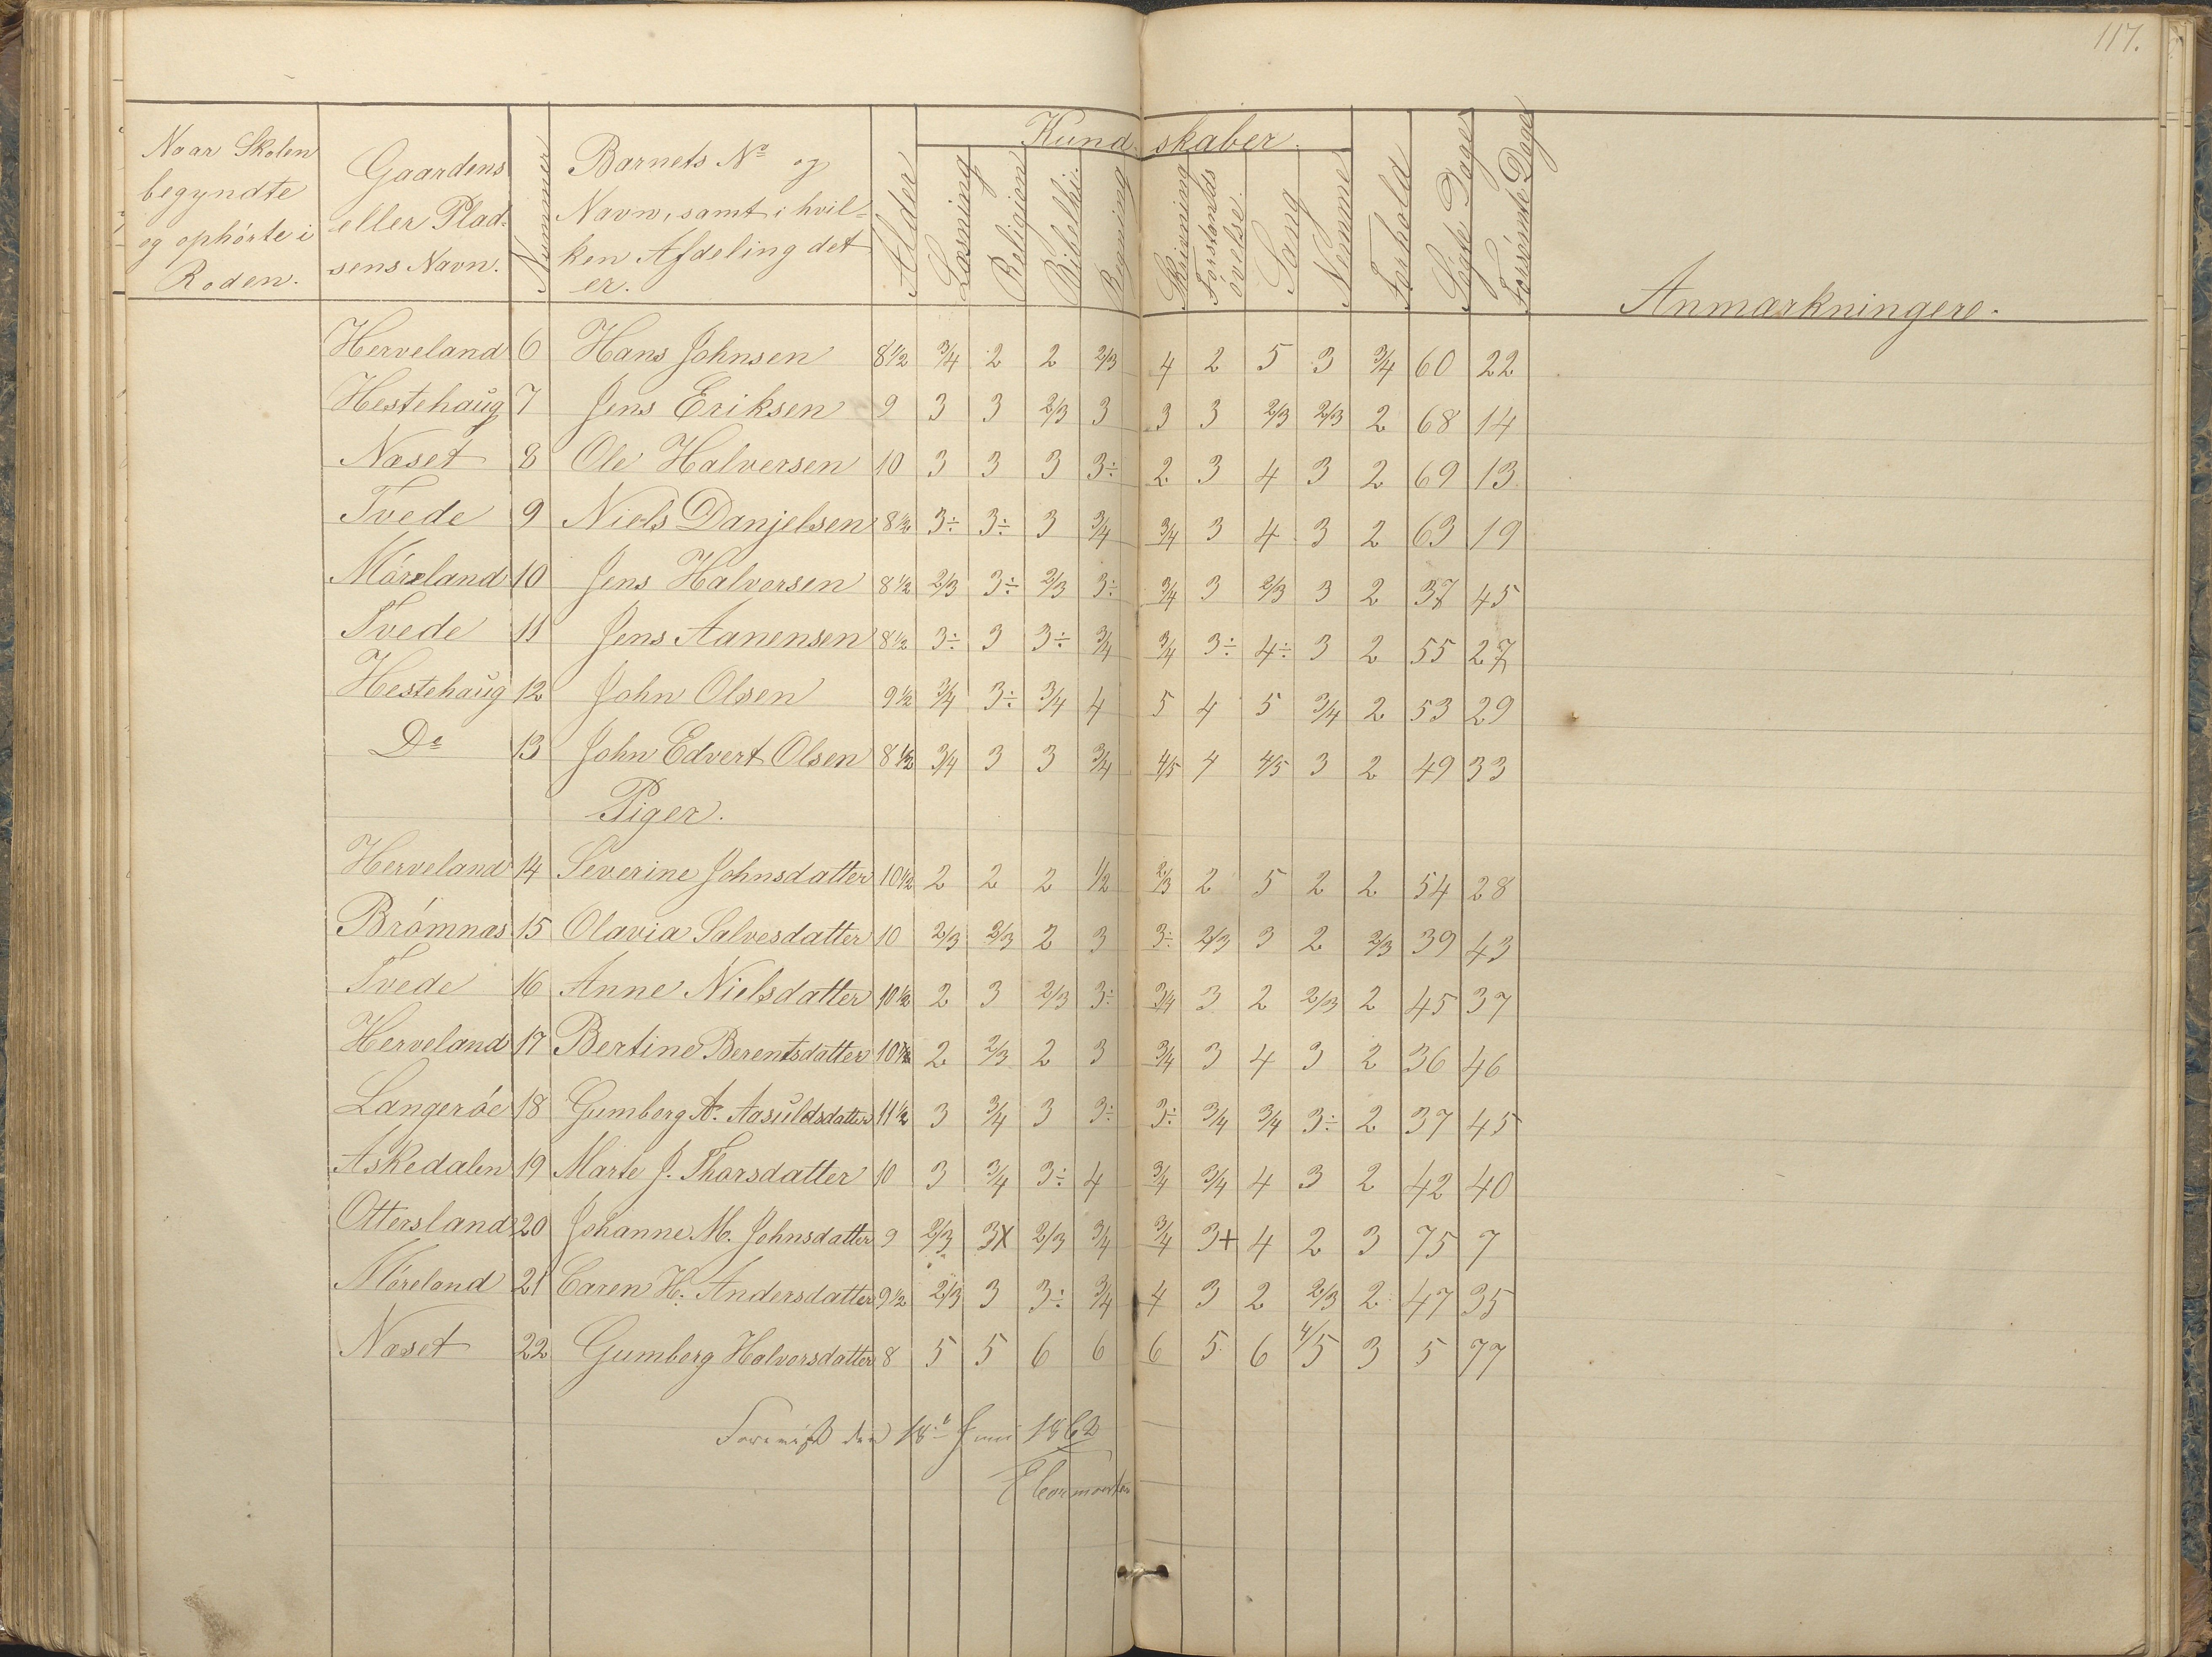 117.
Naar Skolen begyndte og ophörte i Roden. Gaardens eller Pladsens Navn. Nummer Barnets No og Navn, samt i hvilken Afdeling det er. Alder Kundskaber. Læsning Religion Bibelhi. Regning Skrivning Forstandsövelse. Sang Nemme Forhold Sögte Dage Forsömte Dage Anmærkninger.
Herveland 6 Hans Johnsen 8 1/2 3/4 2 2 2/3 4 2 5 3 3/4 60 22
Hestehaug 7 Jens Eriksen 9 3 3 2/3 3 3 3 2/3 2/3 2 68 14
Næset 8 Ole Halversen 10 3 3 3 3÷ 2 3 4 3 2 69 13
Tvede 9 Niels Danjelsen 8 1/2 3÷ 3÷ 3 3/4 3/4 3 4 3 2 63 19
Möreland 10 Jens Halvorsen 8 1/2 2/3 3÷ 2/3 3÷ 3/4 3 2/3 3 2 37 45
Tvede 11 Jens Aanensen 8 1/2 3÷ 3 3÷ 3/4 3/4 3÷ 4÷ 3 2 55 27
Hestehaug 12 John Olsen 9 1/2 3/4 3÷ 3/4 4 5 4 5 3/4 2 53 29
Do 13 John Edvert Olsen 8 1/2 3/4 3 3 3/4 4/5 4 4/5 3 2 49 33
Piger.
Herveland 14 Severine Johnsdatter 10 1/2 2 2 2 1/2 2/3 2 5 2 2 54 28
Brömnæs 15 Olavia Salvesdatter 10 2/3 2/3 2 3 3÷ 2/3 3 2 2/3 39 43
Tvede 16 Anne Nielsdatter 10 1/2 2 3 2/3 3÷ 3/4 3 2 2/3 2 45 37
Herveland 17 Bertine Berentsdatter 10 1/2 2 2/3 2 3 3/4 3 4 3 2 36 46
Langeröe 18 Gumberg A. Aasuldsdatter 11 1/2 3 3/4 3 3÷ 3÷ 3/4 3/4 3÷ 2 37 45
Askedalen 19 Marte J. Thorsdatter 10 3 3/4 3÷ 4 3/4 3/4 4 3 2 42 40
Ottersland 20 Johanne M. Johnsdatter 9 2/3 3X 2/3 3/4 3/4 3+ 4 2 3 75 7
Möreland 21 Caren H. Andersdatter 9 1/2 2/3 3 3÷ 3/4 4 3 2 2/3 2 47 35
Næset 22 Gumberg Halvorsdatter 8 5 5 6 6 6 5 6 4/5 3 5 77
Foreviist den 18de Juni 1862